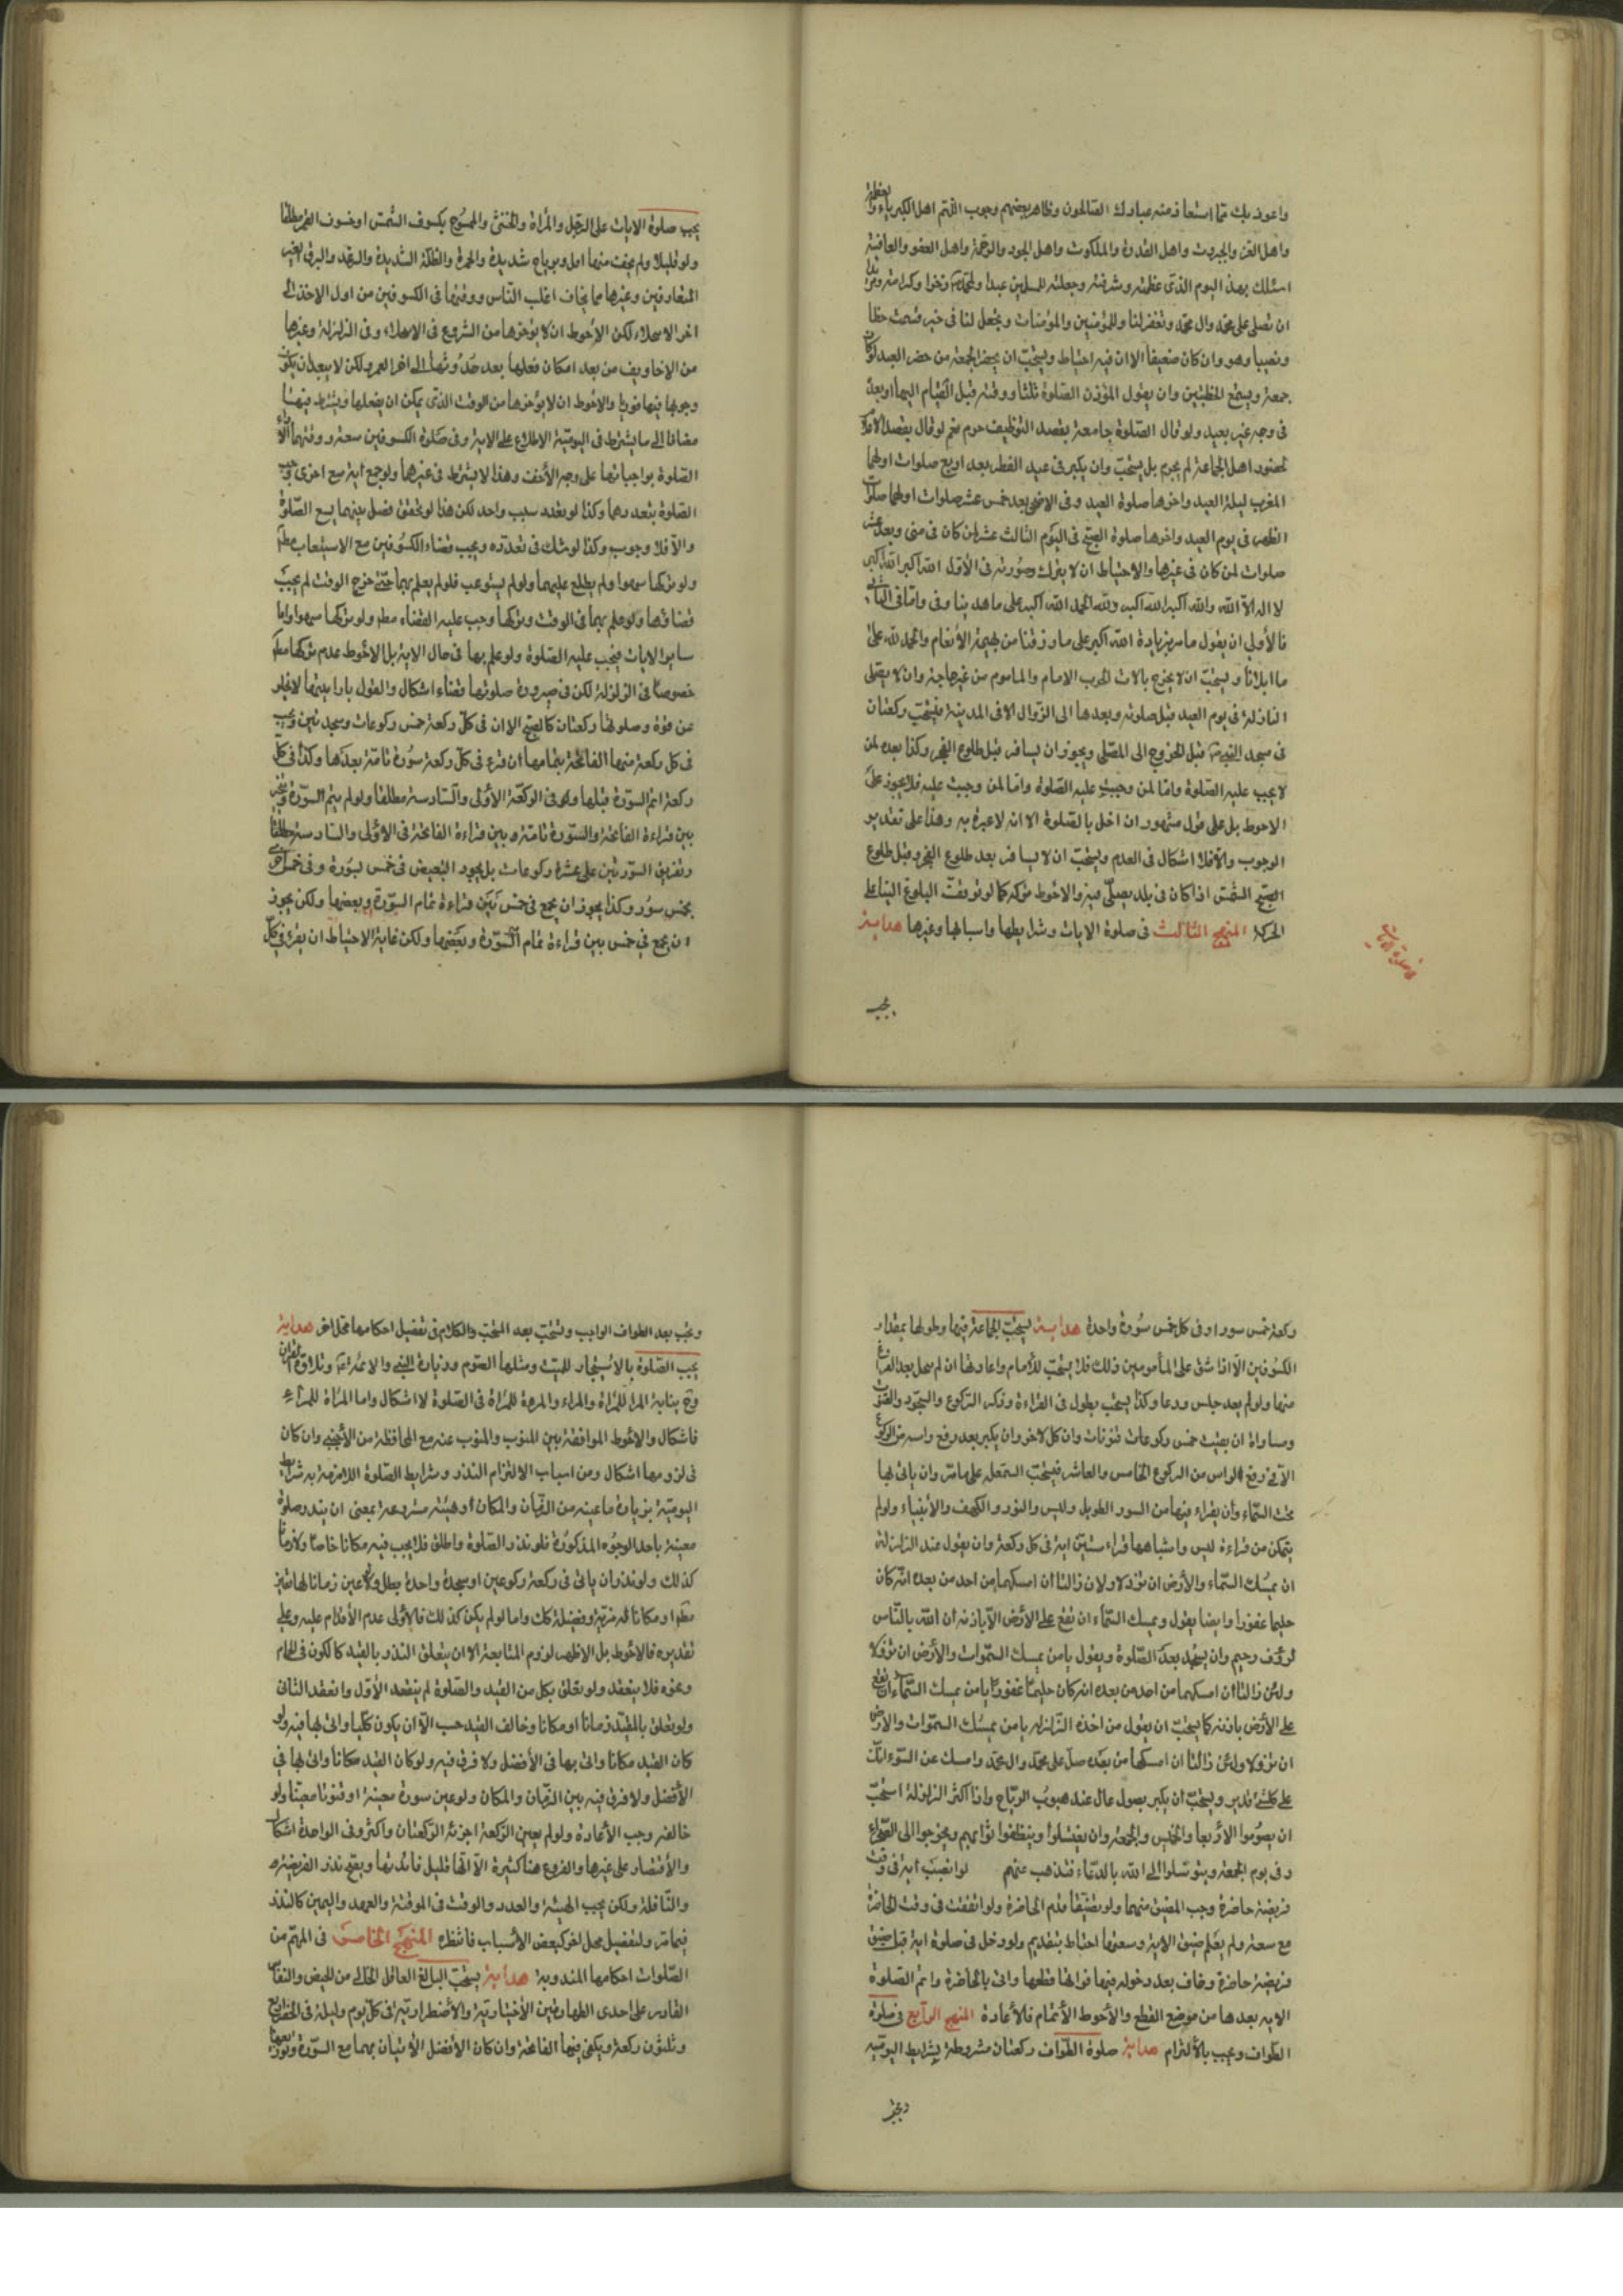 واعوذ بك مما استعاذ منه عبادك الصالحون وظاهر بعضهم وجوب اللهم اهل الكبرياء والعظمة
واهل العز والجبروت واهل القدرة والملكوت واهل الجود والرحمة واهل العفو والعافية
اسئلك بهذا اليوم الذى عظمته وشرفته وجعلته للمسلمين عيدا ولمحمد ص ذخرا وكرامة ومزيدا
ان تصلى على محمد وال محمد وتغفر لنا وللمؤمنين والمؤمنات وتجعل لنا فى خير قسمت حظا
ونصيبا وهو وان كان ضعيفا الا ان فيه احتياط ويستحب ان يحضر الجمعة من حضر العيد لو كان
جمعة ويسمع الخطبتين وان يقول المؤذن الصلوة ثلثا ووقته قبل القيام اليها او بعده
فى وجه غير بعيد ولو قال الصلوة جامعة بقصد التوظيف حرم نعم لو قال بقصد الاعلام
لحضور اهل الجماعة لم يحرم بل يستحب وان يكبر فى عيد الفطر بعد اربع صلوات اولها
المغرب ليلة العيد واخرها صلوة العيد وفى الاضحى بعد خمس عشر صلوات اولها صلوة
الظهر فى يوم العيد واخرها صلوة الصبح فى اليوم الثالث عشر لمن كان فى منى وبعد عشر
صلوات لمن كان فى غيرها والاحتياط ان لا يترك وصورته فى الأول الله اكبر الله اكبر
لا اله الا الله والله اكبر الله اكبر ولله الحمد الله اكبر على ما هدينا وفى واما فى الثانى
فالأولى ان يقول ما مر بزيادة الله اكبر على ما رزقنا من بهيمة الأنعام والحمد لله على
ما ابلانا ويستحب ان لا يخرج بالات الحرب الامام والماموم من غير حاجة وان لا يصلى
النافلة فى يوم العيد قبل صلوته وبعدها الى الزوال الا فى المدينة فيستحب ركعتان
فى مسجد النبى ص قبل الخروج الى المصلى ويجوز ان يسافر قبل طلوع الفجر وكذا بعده لمن
لا يجب عليه الصلوة واما لمن وجبت عليه الصلوة واما لمن وجبت عليه فلا يجوز على
الاحوط بل على قول مشهور ان اخل بالصلوة الا انه لا عبرة به وهذا على تقدير
الوجوب والا فلا اشكال فى العدم ويستحب ان لا يسافر بعد طلوع الفجر وقبل طلوع
الصبح الشمس اذا كان فى بلد يصلى فيه والاحوط تركه كما لو توقفت البلوغ اليها على
الحركة المنهج الثالث فى صلوة الايات وشرايطها واسبابها وغيرها هداية
يجب
يجب صلوة الايات على الرجل والمرأة والخنثى والممسوح بكسوف الشمس او خسوف القمر مطلقا
ولو قليلا ولم يخف منهما اهل وبرياح شديدة والحمرة والظلمة الشديدة والرعد والبرق الغير
المتعارفين وغيرها مما يخاف اغلب الناس ووقتها فى الكسوفين من اول الاخذ الى
اخر الانجلاء لكن الأحوط ان لا يؤخرها من الشروع فى الانجلاء وفى الزلزلة وغيرها
من الاخاويف من بعد امكان فعلها بعد حدوثها الى اخر العمر ولكن لا يبعد ان يكون
وجوبها فيها فوريا والاحوط ان لا يؤخرها من الوقت الذى يمكن ان يفعلها ويشترط فيهما
مضافا الى ما يشترط فى اليومية الاطلاع على الاية وفى صلوة الكسوفين سعة وقتهما لأداء
الصلوة بواجباتها على وجه الأخف وهذا لا يشترط فى غيرهما ولو جمع اية مع اخرى وجب
الصلوة بتعددهما وكذا لو تعدد سبب واحد لكن هذا لو تحقق فصل بينهما يسع الصلوة
والا فلا وجوب وكذا لو شك فى تعدده ويجب قضاء الكسوفين مع الاستيعاب مطلقا
ولو تركها سهوا ولم يطلع عليهما ولو لم يستوعب فلو لم يعلم بهما حتى خرج الوقت لم يجب
قضائها ولو علم بهما فى الوقت وتركها وجب عليه القضاء مطلقا ولو تركها سهوا واما
ساير الايات فيجب عليه الصلوة ولو علم بها فى حال الاية بل الاحوط عدم تركها مطلقا
خصوصا فى الزلزلة لكن فى صيرورة صلوتها قضاء اشكال والقول بادا بينهما لا يخلو
عن قوة وصلوتها ركعتان كالصبح الا ان فى كل ركعة خمس ركوعات وسجدتين ويجب
فى كل ركعة منها الفاتحة بتمامها ان قرء فى كل ركعة سورة تامة بعدها وكذا فى كل
ركعة اتم السورة قبلها وهو فى الركعة الأولى والسادسة مطلقا ولو لم يتم السورة ويخير
بين قراءة الفاتحة والسورة تامة وبين قراءة الفاتحة فى الأولى والسادسة مطلقا
وتفريق السورتين على عشرة ركوعات بل يجوز التبعيض فى خمس بسورة وفى خمس اخرى
بخمس سور وكذا يجوز ان يجمع فى خمس بين قراءة تمام السورة وبعضها ولكن يجوز
ان يجمع فى خمس بين قراءة تمام السورة وبعضها ولكن غاية الاحتياط ان يقرء فى كل
ركعة خمس سور او فى كل خمس سورة واحدة هداية يستحب الجماعة فيها وطولها بمقدار
الكسوفين الا اذا شق على المأمومين ذلك فلا يستحب للأمام واعادتها ان لم ينجل بعد الفراغ
منها ولو لم يعد جلس ودعا وكذا يستحب يطول فى القراءة وذكر الركوع والسجود والقنوت
ومساواة ان يقنت خمس ركوعات قنوتات وان كل لاخر وان يكبر بعد رفع راسه من الركوع
الا فى رفع الراس من الركوع الخامس والعاشر فيستحب السمعلة على ما مر وان ياتى بها
تحت السماء وان يقراء فيها من السور الطويل وليس والنور والكهف والأنبياء ولو لم
يتمكن من قراءة ليس واشباهها قراء ستين اية فى كل ركعة وان يقول عند الزلزلة
ان يمسك السماء والأرض ان تزولا ولان زالتا ان امسكهما من احد من بعده انه كان
حليما غفورا وايضا يقول ويمسك السماء ان تقع على الأرض الا باذنه ان الله بالناس
لرؤف رحيم وان يسجد بعد الصلوة ويقول يامن يمسك السموات والأرض ان تزولا
ولئن زالتا ان امسكهما من احد من بعده انه كان حليما غفورا يا من يمسك السماء ان تقع
على الأرض باذنه كما يستحب ان يقول من اخذه الزلزلة يا من يمسك السموات والأرض
ان تزولا ولئن زالتا ان امسكها من بعده صل على محمد وال محمد وامسك عن السوء انك
على كلشئ قدير ويستحب ان يكبر بصول عال عند هبوب الرياح واذا اكثر الزلزلة استحب
ان يصوموا الأربعا والخميس والجمعة وان يغتسلوا وينظفوا ثوابهم ويخرجوا الى الصحراء
وفى يوم الجمعة ويتوسلوا الى الله بالدعاء فتذهب عنهم لو انصبت اية فى وقت
فريضة حاضرة وجب المضيق منهما ولو تضيقا قدم الحاضرة ولو اتفقت فى وقت الحاضرة
مع سعته ولم يعلم ضيق الاية وسعتها احتاط بتقديم ولو دخل فى صلوة اية قبل ضيق
فريضة حاضرة وخاف بعد دخوله فيها فواتها قطعها واتى بالحاضرة واتم الصلوة
الاية بعدها من موضع القطع والأحوط الأتمام فالأعادة المنهج الرابع فى صلوة
الطواف ويجب بالألتزام هداية صلوة الطواف ركعتان مشروطة بشرايط اليومية
ويجب
ويجب بعد الطواف الواجب ويستحب بعد المستحب والكلام فى تفصيل احكامها محل اخر هداية
يجب الصلوة بالاستيجار للميت ومثلها الصوم وزيارة النبى والائمة ع وتلاوة القرآن
وصح نيابة المرأ للمرأة والمراء والمرءة للمرأة فى الصلوة لا اشكال واما المرأة للمراء
فاشكال والاحوط الموافقة بين المنوب والمنوب عنه مع المحافظة من الأجنبى وان كان
فى لزومها اشكال ومن اسباب الالتزام النذر وشرايط الصلوة اللازمة به شرايط
اليومية بزيادة ما عينه من الزمان والمكان او هيئة مشروعة بمعنى ان ينذر صلوة
معينة باحد الوجوه المذكورة فلو نذر الصلوة واطلق فلا يجب فيه مكانا خاصا ولا زمانا
كذلك ولو نذر ان ياتى فى ركعة ركوعين او سجدة واحدة بطل ولو عين زمانا لها تميز
مطلقا او مكانا له مزية وفضيلة فكك واما لو لم يكن كذلك فالأولى عدم الأقدام عليه وعلى
تقديره فالاحوط بل الاظهر لزوم المتابعة الا ان يتعلق النذر بالقيد كالكون فى الحمام
ونحوه فلا ينعقد ولو تعلق بكل من القيد والصلوة لم ينعقد الأول وانعقد الثانى
ولو تعلق بالمقيد زمانا او مكانا وخالف القيد حسب الا ان يكون كليا واتى بها فيه ولو
كان القيد مكانا واتى بها فى الأفضل ولا فرق فيه ولو كان القيد مكانا واتى بها فى
الأفضل ولا فرق فيه بين الزمان والمكان ولو عين سورة معينة او قنوتا معينا ولو
خالفه وجب الأعادة ولو لم يعين الركعة اجزئه الركعتان واكثر وفى الواحدة اشكال
والأقتصار على غيرها والفروع هنا كثيرة الا انها قليل فائدتها ويصح نذر الفريضة
والنافلة ولكن يجب الهيئة والعدد والوقت فى الموقتة والعهد واليمين كالنذر
فيما مر ولتفصيل محل اخر كبعض الأسباب فانتظره المنهج الخامس فى المهم من
الصلوات احكامها المندوبة هداية يستحب البالغ العاقل الخالى من الحيض والنفاس
القادر على احدى الطهارتين الأختيارية والأضطرارية فى كل يوم وليلة فى الحضر اربع
وثلثون ركعة ويكفى فيها الفاتحة وان كان الأفضل الأتيان بهما مع السورة